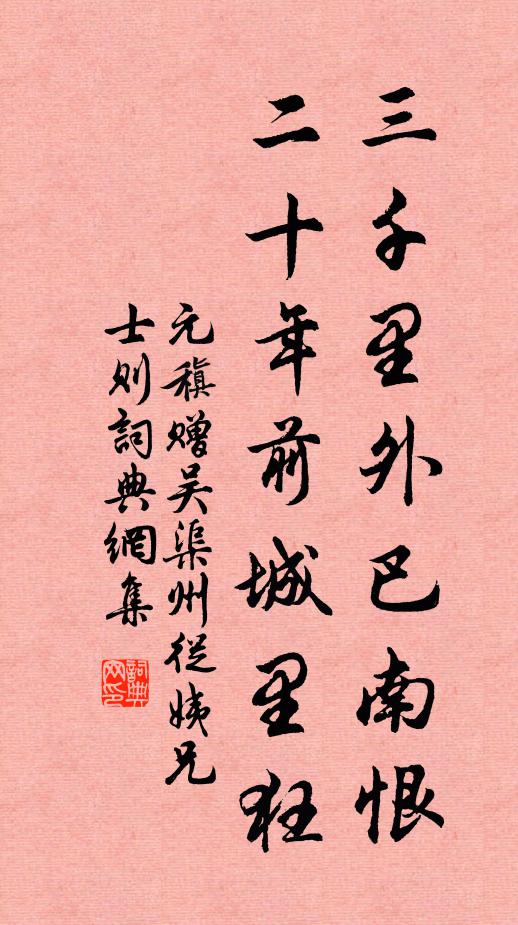 三千里外巴南恨
二十年前城里狂
元稹赠吴渠州從姨兄
士则詞典網集
詞典
网印